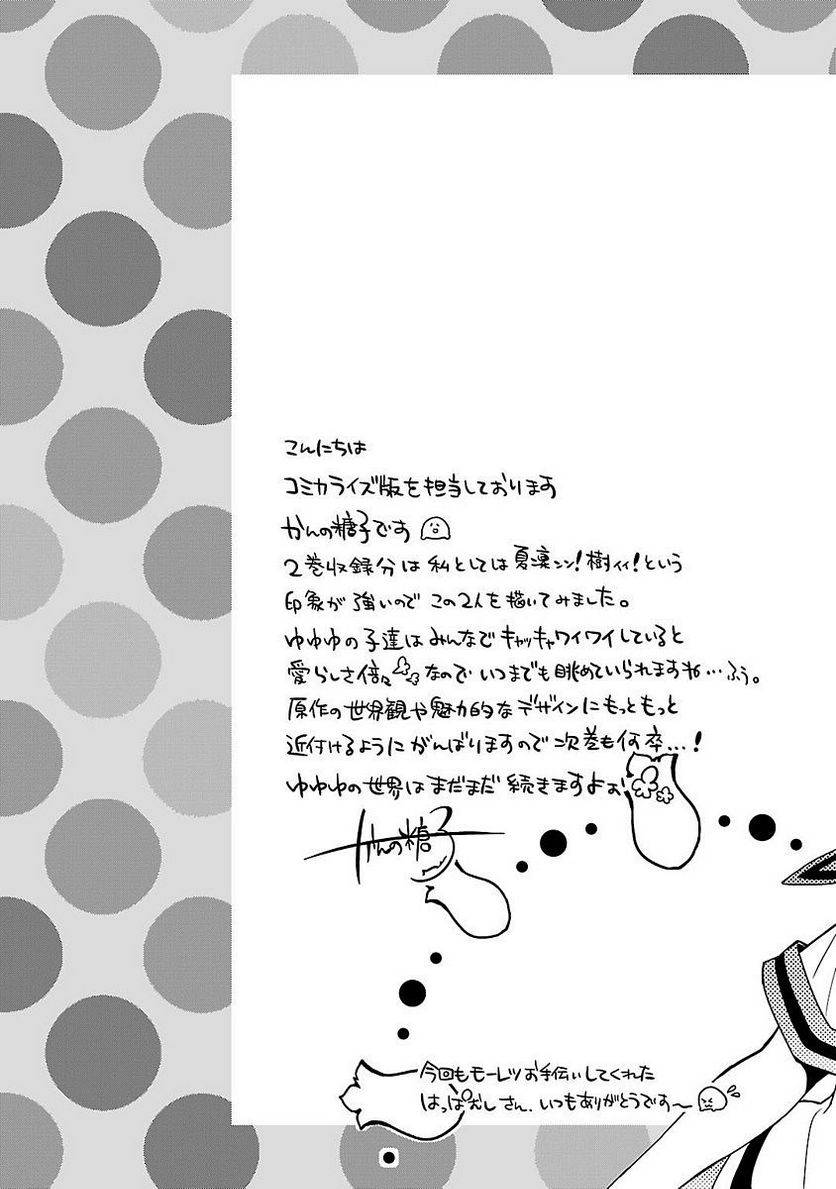 こんにちは
コミカライズ版を担当しております
かんの糖子です
2巻収録分は私としては夏凜ンン!樹ィィ!という
印象が強いのでこの2人を描いてみました。
ゆゆゆの子達はみんなでキャッキャワイワイしていると
愛らしさ倍々なのでいつまでも眺めていられますね…ふぅ。
原作の世界観や魅力的なデザインにもっともっと
近付けるようにがんばりますので次巻も何卒…!
ゆゆゆの世界はまだまだ続きますよぉ
かんの糖子
今回もモーレツお手伝いしてくれた
はっぱおしさん、いつもありがとうです〜